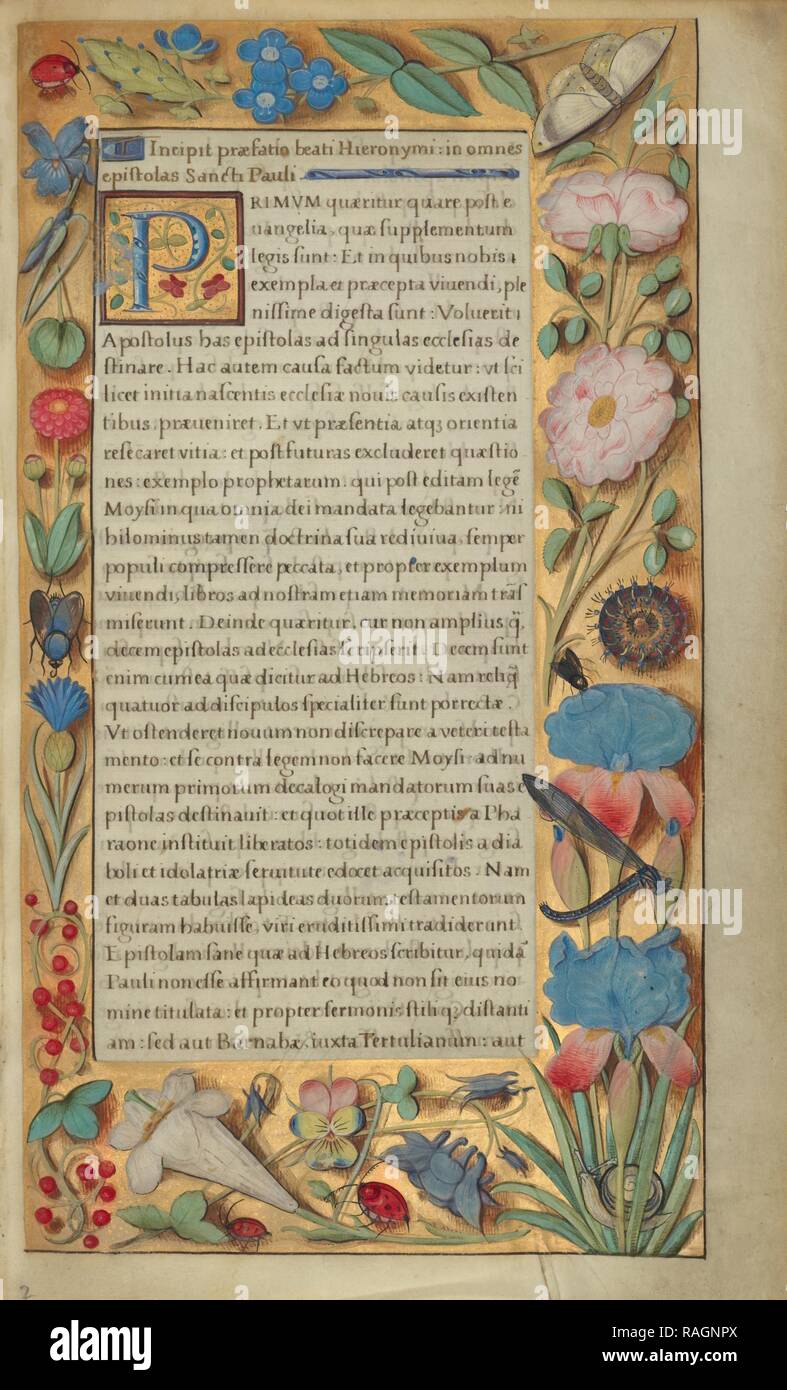 Incipit præfatio beati Hieronymi: in omnes
epistolas Sancti Pauli
PRIMVM quæritur quare post e
uangelia, quæ supplementum
legis sunt: Et in quibus nobis
exempla et præcepta viuendi, ple
nissime digesta sunt: Voluerit
Apostolus has epistolas ad singulas ecclesias de
stinare. Hac autem causa factum videtur: vt sci
licet initia nascentis ecclesiæ nouis causis existen
tibus, præueniret. Et vt præsentia atq; orientia
resecaret vitia: et post futuras excluderet quæstio
nes: exemplo prophetarum. qui post editam legē
Moysi in qua omnia dei mandata legebantur: ni
hilominus tamen doctrina sua rediuiua, semper
populi compressere peccata, et propter exemplum
viuendi, libros ad nostram etiam memoriam trās
miserunt. Deinde quæritur, cur non amplius q̄
decem epistolas ad ecclesias scripserit. Decem sunt
enim cum ea quæ dicitur ad Hebreos: Nam reliq̄
quatuor ad discipulos specialiter sunt porrectæ.
Vt ostenderet nouum non discrepare a veteri testa
mento: et se contra legem non facere Moysi: ad nu
merum primorum decalogi mandatorum suas e
pistolas destinauit: et quot ille præceptis a Pha
raone instituit liberatos: totidem epistolis a dia
boli et idolatriæ seruitute edocet acquisitos. Nam
et duas tabulas lapideas duorum testamentorum
figuram habuisse, viri eruditissimi tradiderunt.
Epistolam sane quæ ad Hebreos scribitur, quidā
Pauli non esse affirmant eo quod non sit eius no
mine titulata: et propter sermonis stiliq; distanti
am: sed aut Barnabæ iuxta Tertulianum: aut
2
alamy
Image ID: RAGNPX
www.alamy.com